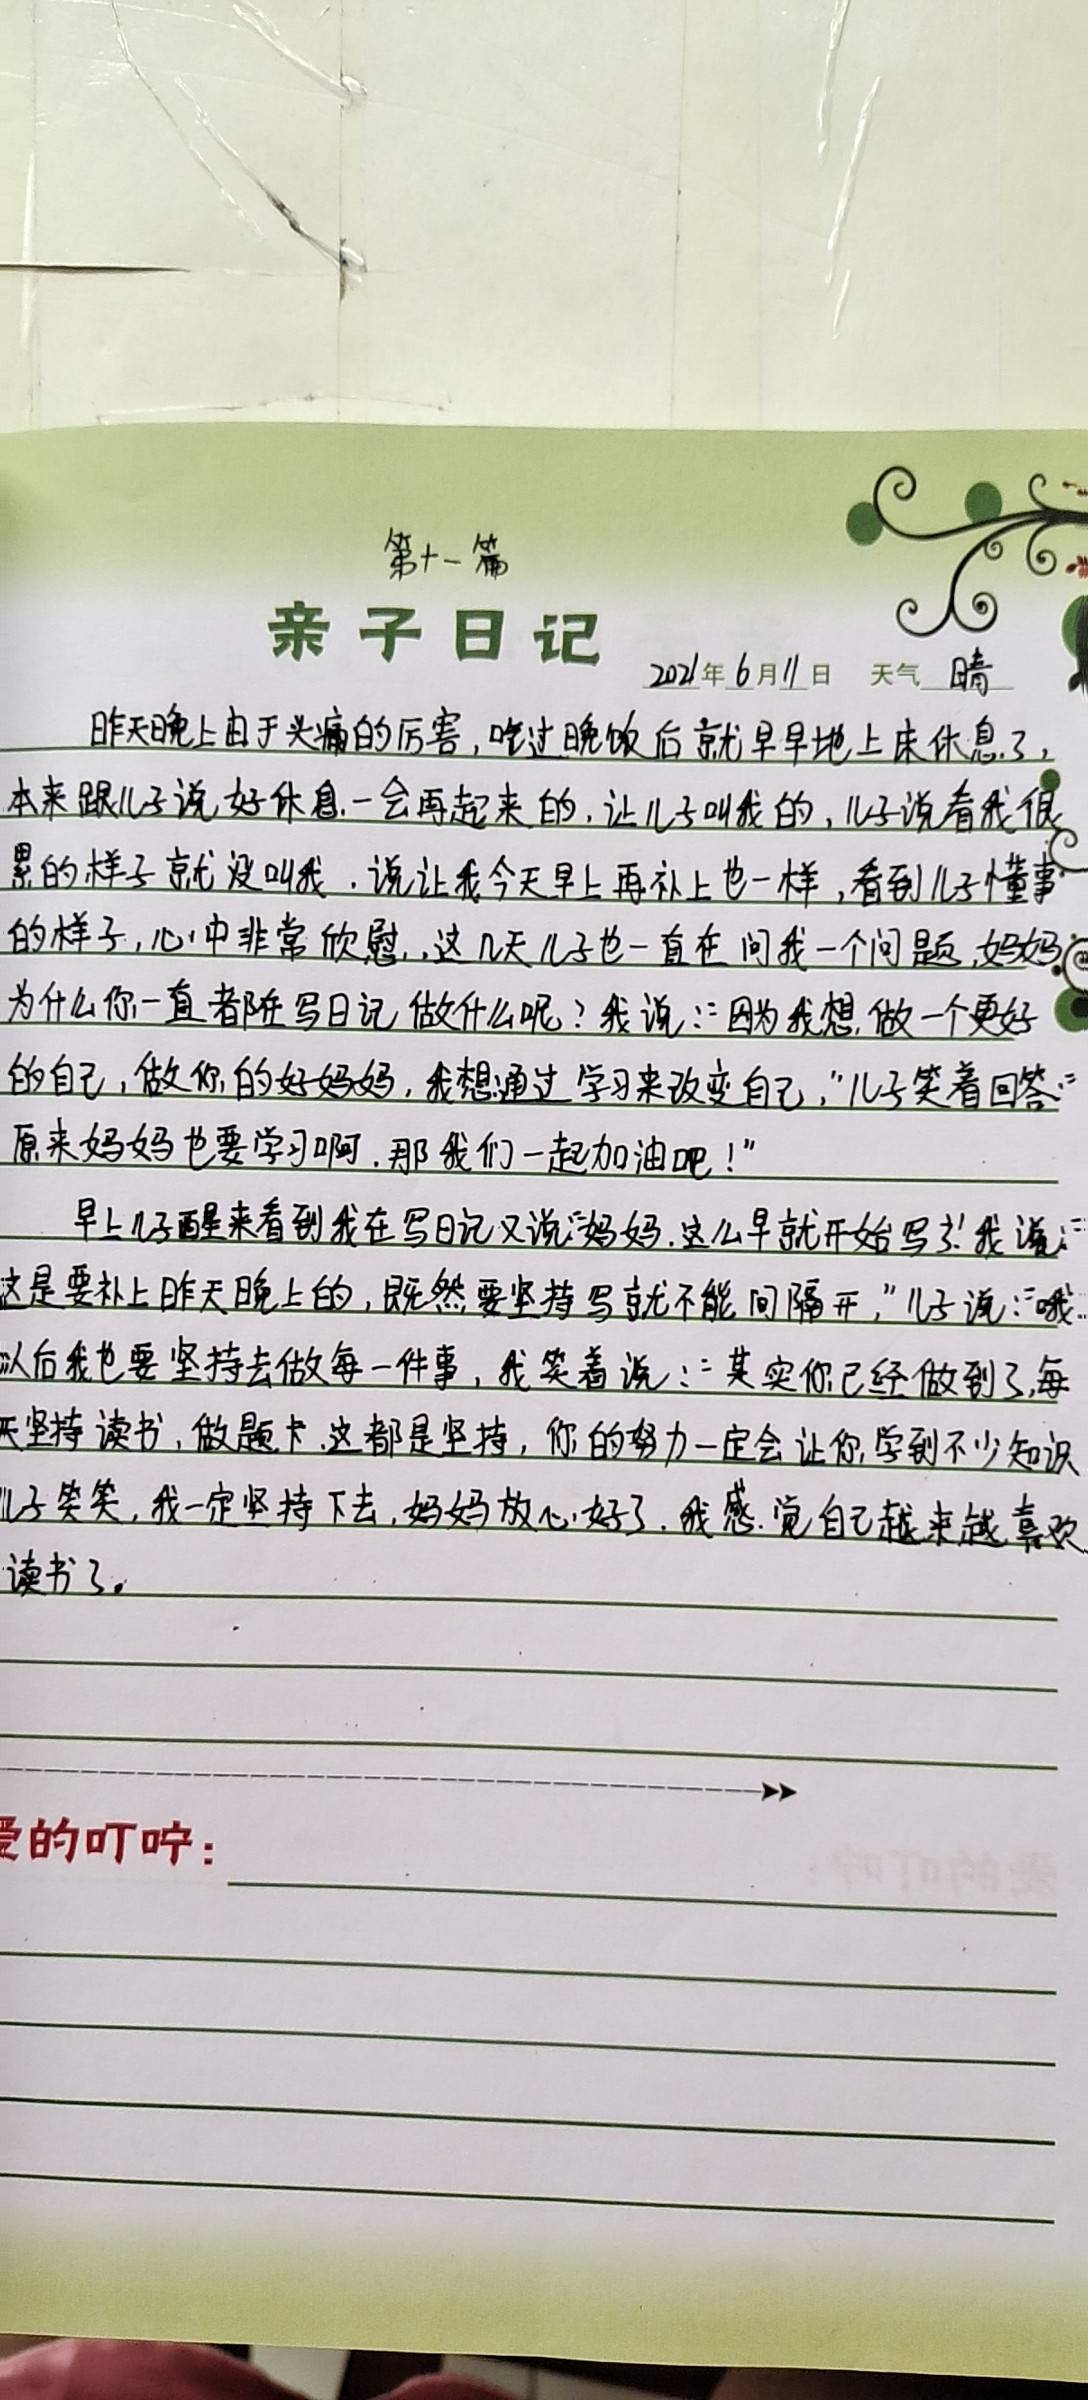 第十一篇
亲子日记
2021年6月11日 天气 晴
昨天晚上由于头痛的厉害,吃过晚饭后就早早地上床休息了,
本来跟儿子说好休息一会再起来的,让儿子叫我的,儿子说看我很
累的样子就没叫我.说让我今天早上再补上也一样,看到儿子懂事
的样子,心中非常欣慰,这几天儿子也一直在问我一个问题,妈妈
为什么你一直都在写日记做什么呢?我说:"因为我想做一个更好
的自己,做你的好妈妈,我想通过学习来改变自己,"儿子笑着回答:"
原来妈妈也要学习啊.那我们一起加油吧!"
早上儿子醒来看到我在写日记又说:"妈妈.这么早就开始写了!"我说:"
这是要补上昨天晚上的,既然要坚持写就不能间隔开,"儿子说:"哦..
以后我也要坚持去做每一件事,我笑着说:"其实你已经做到了,每
天坚持读书,做题卡.这都是坚持,你的努力一定会让你学到不少知识
儿子笑笑,我一定坚持下去,妈妈放心好了.我感觉自己越来越喜欢
读书了。
爱的叮咛: